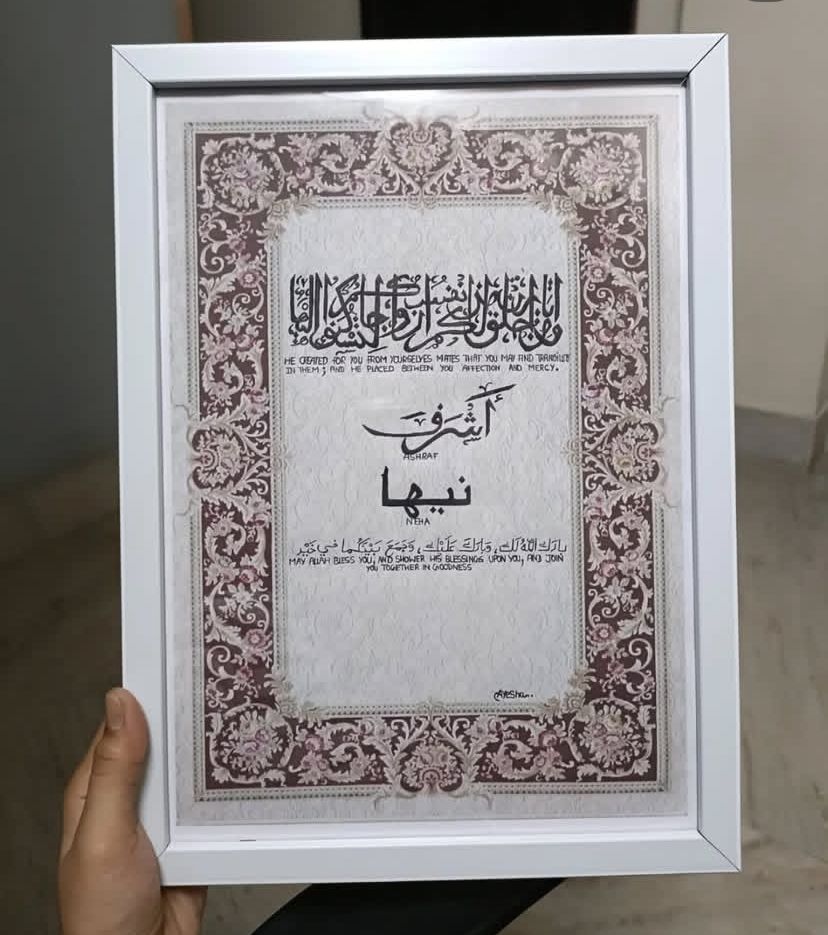 ومن آياته أن خلق لكم من أنفسكم أزواجا لتسكنوا إليها
HE CREATED FOR YOU FROM YOURSELVES MATES THAT YOU MAY FIND TRANQUILITY
IN THEM; AND HE PLACED BETWEEN YOU AFFECTION AND MERCY.
أشرف
ASHRAF
نيها
NEHA
بَارَكَ اللَّهُ لَكَ، وَبَارَكَ عَلَيْكَ، وَجَمَعَ بَيْنَكُمَا فِي خَيْرٍ
MAY ALLAH BLESS YOU, AND SHOWER HIS BLESSINGS UPON YOU, AND JOIN
YOU TOGETHER IN GOODNESS
Ayesha..